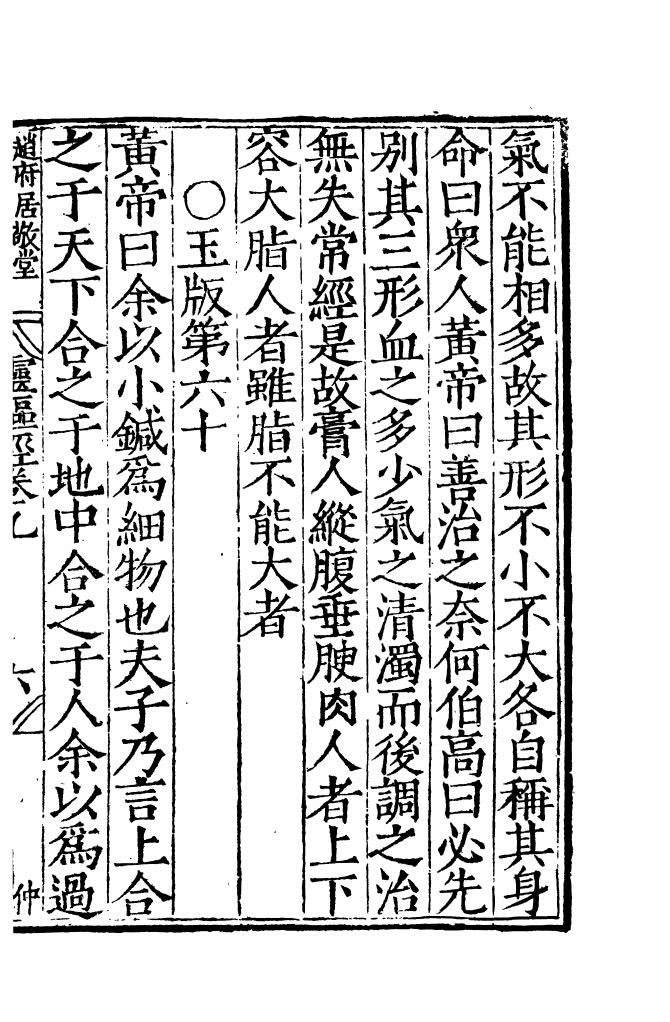 氣不能相多故其形不小不大各自稱其身
命曰衆人黃帝曰善治之奈何伯高曰必先
別其三形血之多少氣之清濁而後調之治
無失常經是故膏人縱腹垂腴肉人者上下
容大脂人者雖脂不能大者
○玉版第六十
黃帝曰余以小鍼爲細物也夫子乃言上合
之于天下合之于地中合之于人余以爲過
趙府居敬堂
靈樞經卷九
六
仲